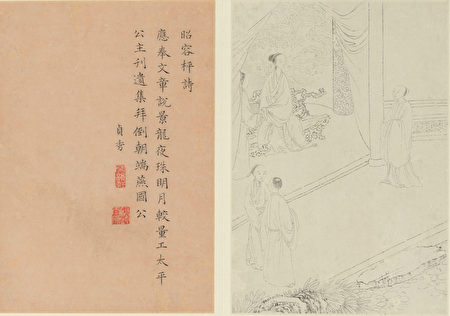 昭容秤詩
應奉文章說景龍夜珠明月較量工太平
公主刊遺集拜倒朝端燕國公
貞秀